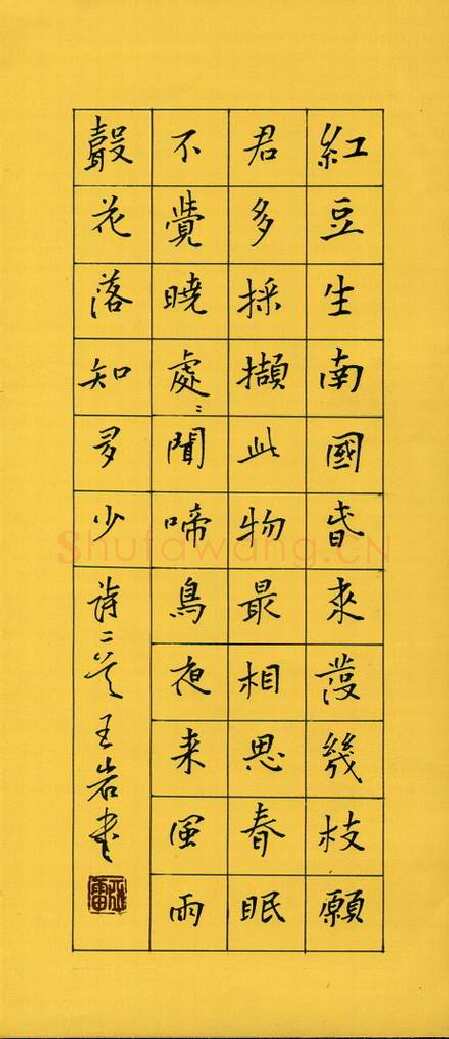 紅豆生南國春來發幾枝願
君多採擷此物最相思春眠
不覺曉處〻聞啼鳥夜来風雨
聲花落知多少 詩二首 王岩書
Shufawang.CN